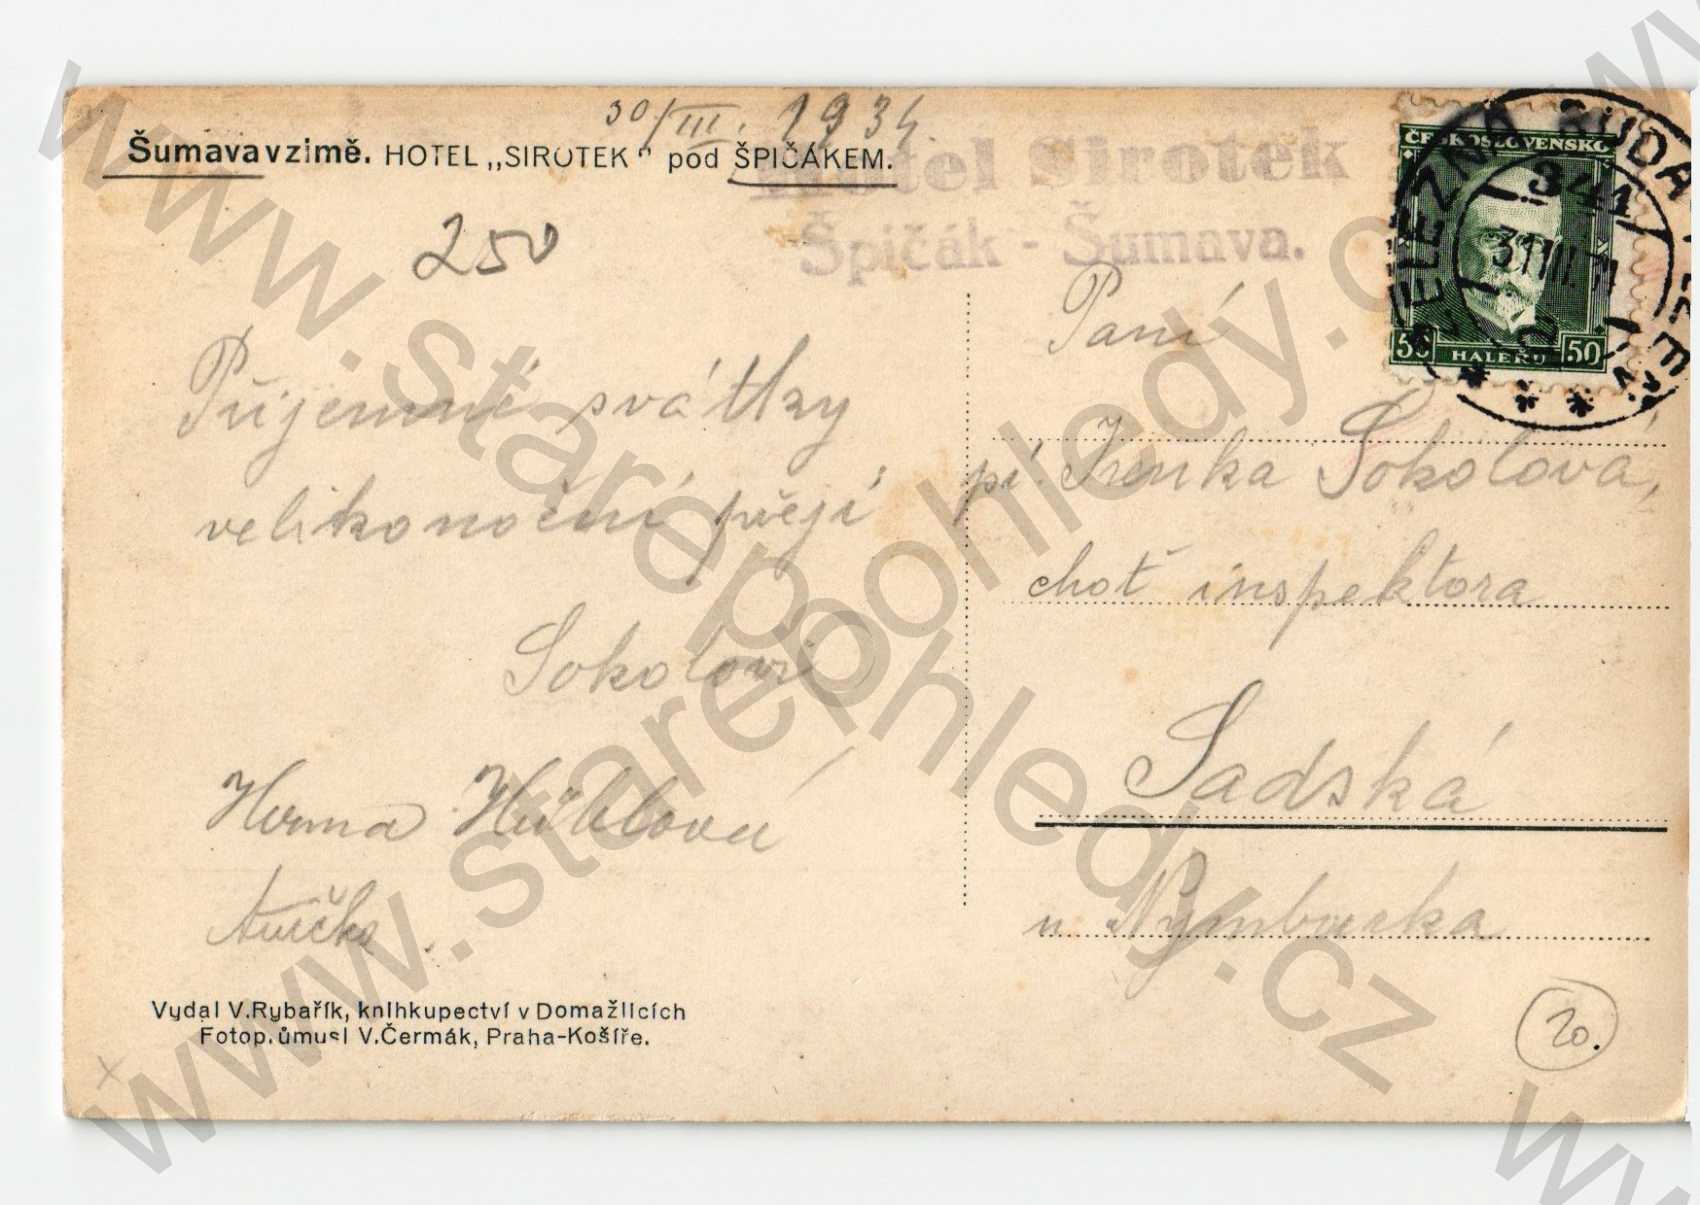 30/III. 1934.
Šumava v zimě. HOTEL „SIROTEK" pod ŠPIČÁKEM.
Hotel Sirotek
Špičák - Šumava.
ČESKOSLOVENSKO
50 HALERŮ 50
ŽELEZNÁ RUDA
250
Příjemné svátky
velikonoční přejí
Sokolovi
Anička.
Paní
pí. Irenka Sokolová,
choť inspektora
Sadská
u Nymburka
Vydal V. Rybařík, knihkupectví v Domažlicích
Fotop. ůmysl V. Čermák, Praha-Košíře.
20.
www.starepohledy.cz
www.starepohledy.cz